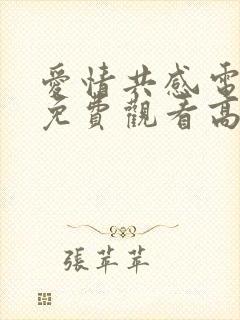 愛情共感電
免費觀看高
張苹苹